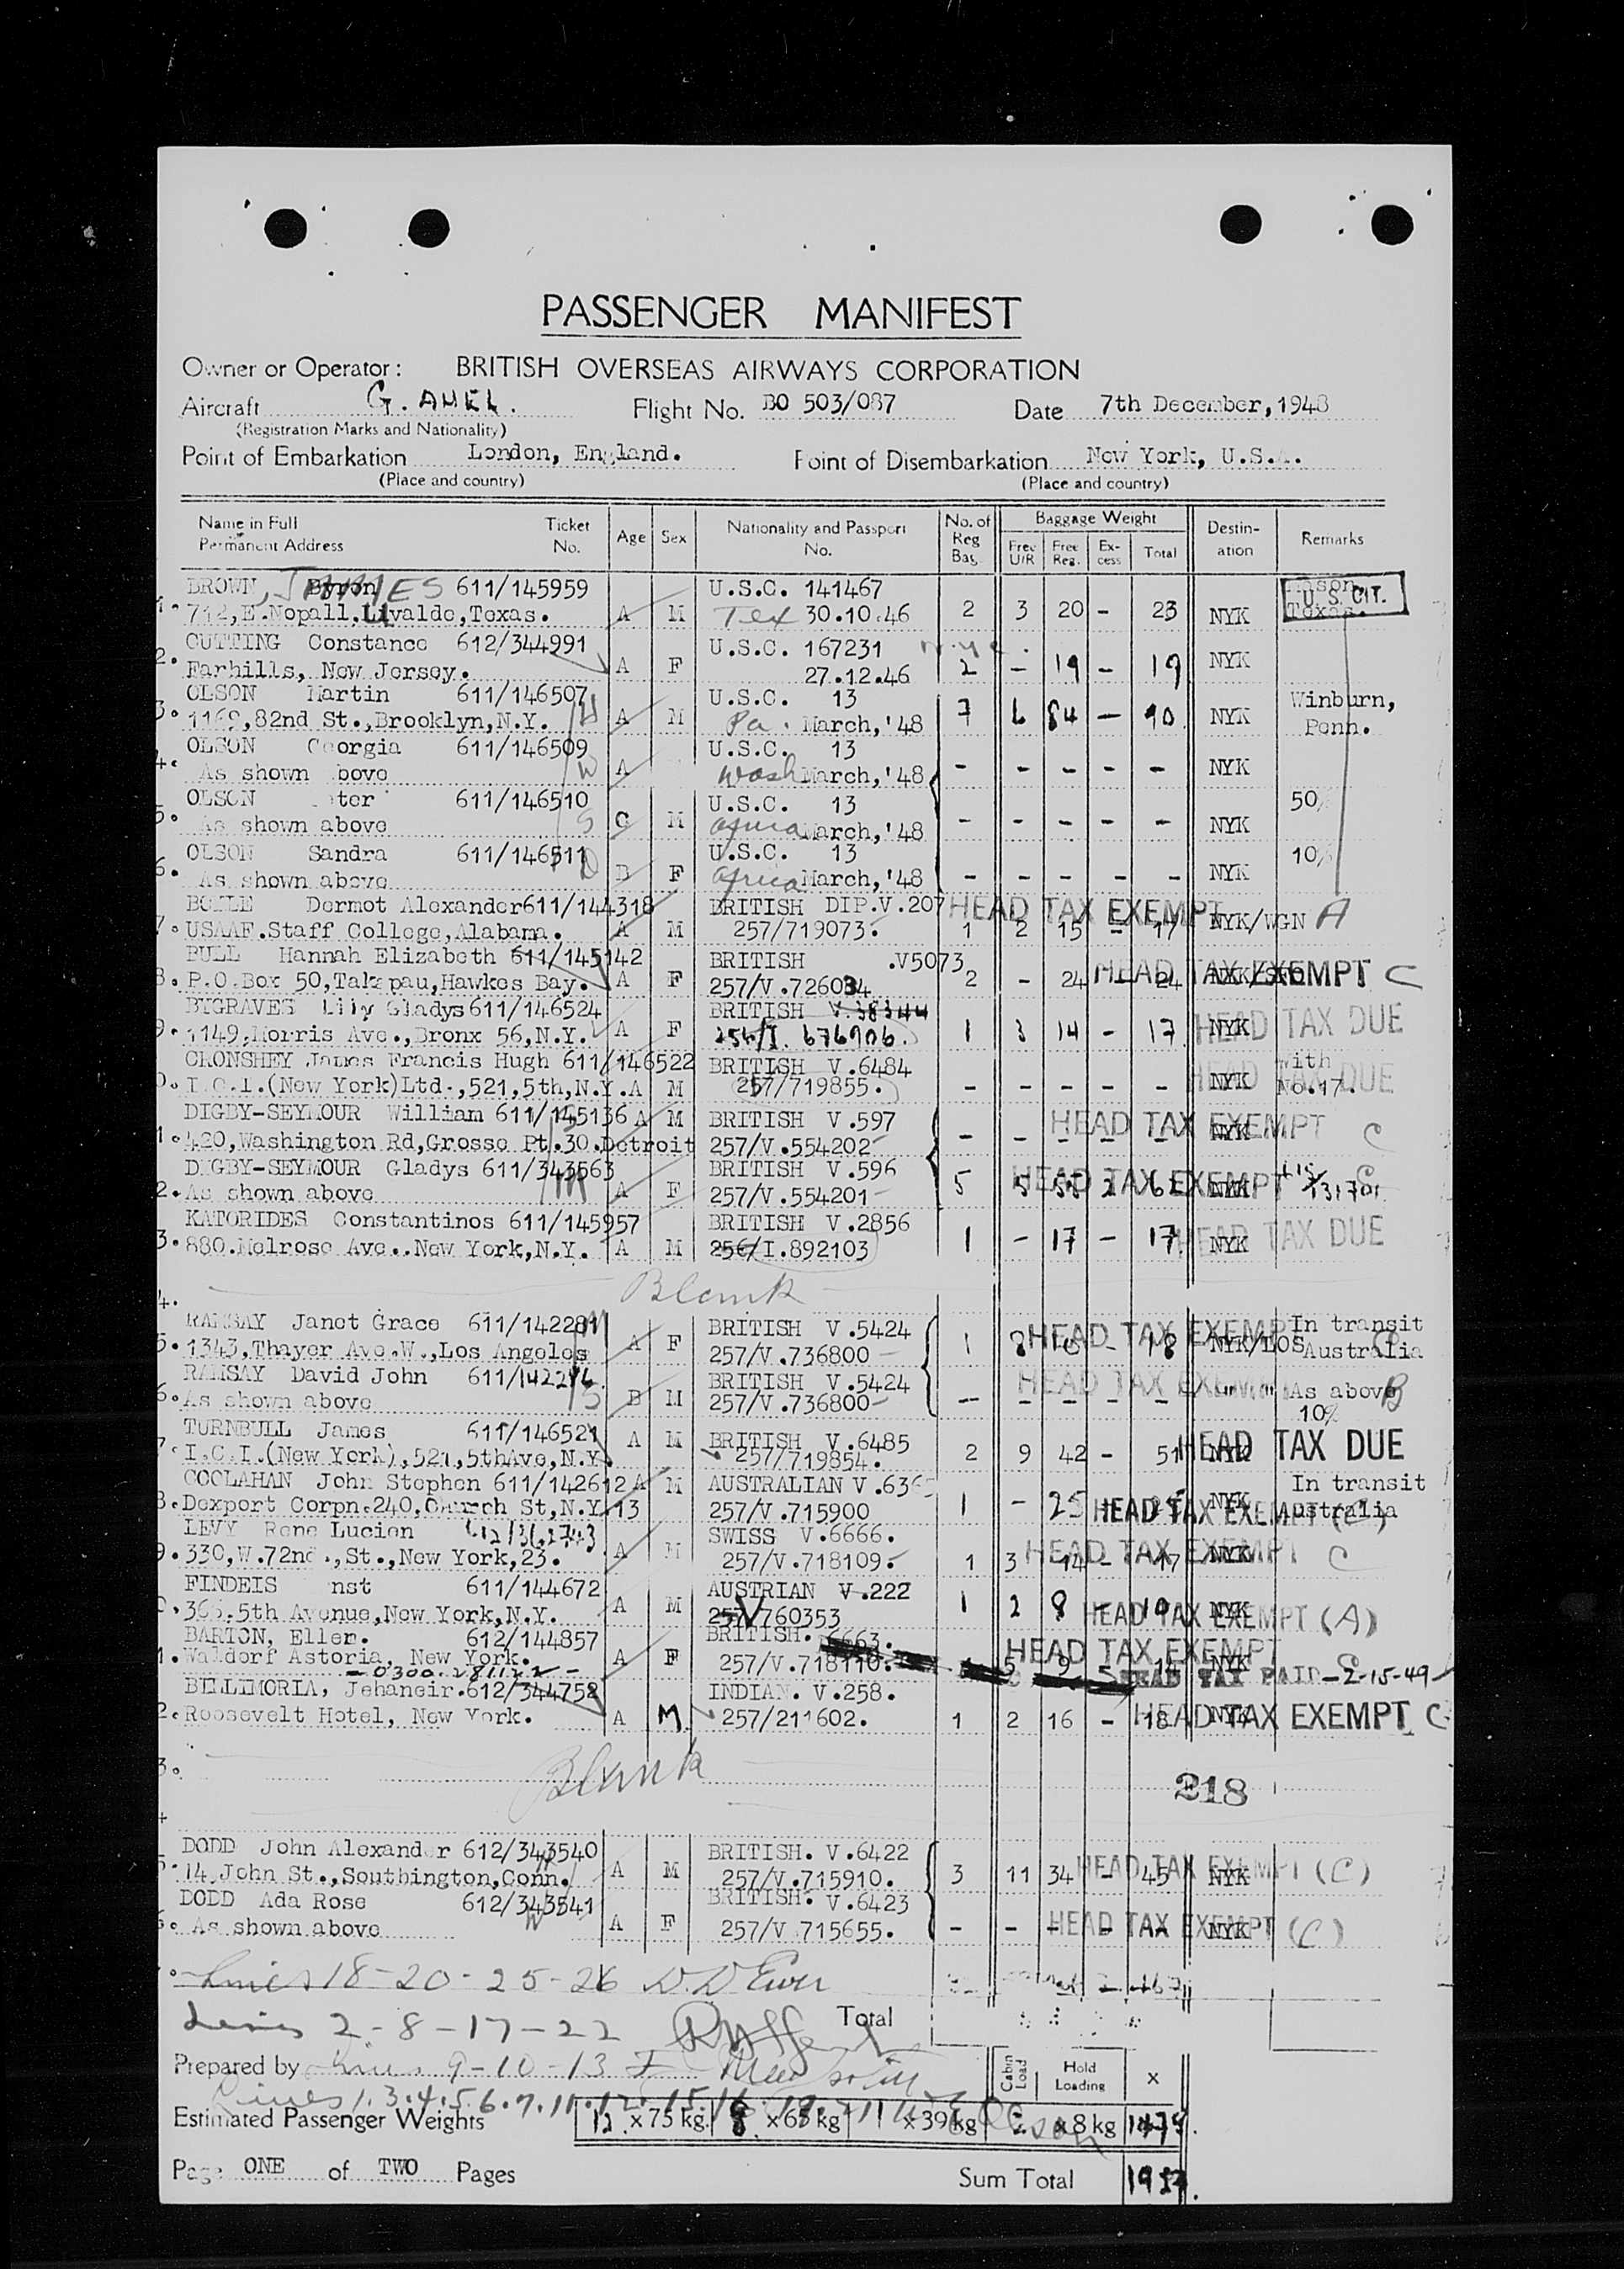 PASSENGER MANIFEST
Owner or Operator: BRITISH OVERSEAS AIRWAYS CORPORATION
Aircraft G. AHEL. Flight No. BO 503/087 Date 7th December, 1948
(Registration Marks and Nationality)
Point of Embarkation London, England. Point of Disembarkation New York, U.S.A.
(Place and country) (Place and country)
Name in Full Ticket Age Sex Nationality and Passport No. of Baggage Weight Destin- Remarks
Permanent Address No. No. Reg Bag. Free U/R Free Reg. Ex-cess Total ation
BROWN, JAMES 611/145959 U.S.C. 141467 U.S. CIT.
712, E.Nopall, Uvalde, Texas. A M Tex 30.10.46 2 3 20 - 23 NYK Texas.
CUTTING Constance 612/344991 U.S.C. 167231
2. Farhills, New Jersey. A F 27.12.46 2 - 19 - 19 NYK
OLSON Martin 611/146507 U.S.C. 13 Winburn,
3. 1169,82nd St.,Brooklyn,N.Y. A M Pa. March,'48 7 6 84 - 90 NYK Penn.
OLSON Georgia 611/146509 U.S.C. 13
As shown above W A Wash March,'48 - - - - - NYK
OLSON 611/146510 U.S.C. 13 50
As shown above S C M Africa March,'48 - - - - - NYK
OLSON Sandra 611/146511 U.S.C. 13 10
6. As shown above D B F Africa March,'48 - - - - - NYK
Dermot Alexander 611/144318 BRITISH DIP.V.207 HEAD TAX EXEMPT A
7. USAAF.Staff College,Alabama. A M 257/719073. 1 2 15 - 17 NYK/WGN
BULL Hannah Elizabeth 611/145142 BRITISH .V5073
8. P.O.Box 50,Takapau,Hawkes Bay. A F 257/V.726034 2 - 24 24 HEAD TAX EXEMPT C
BYGRAVES Lily Gladys 611/146524 BRITISH V.38344
9. 1149,Morris Ave.,Bronx 56,N.Y. A F 256/I. 676906. 1 3 14 - 17 NYK HEAD TAX DUE
CRONSHEY James Francis Hugh 611/146522 BRITISH V.6484 with
I.C.I.(New York)Ltd.,521,5th,N.Y. A M 257/719855. - - - - - NYK No.17. HEAD TAX DUE
DIGBY-SEYMOUR William 611/145136 A M BRITISH V.597 HEAD TAX EXEMPT
420,Washington Rd,Grosse Pt.30.Detroit 257/V.554202 - - - - - NYK C
DIGBY-SEYMOUR Gladys 611/343563 BRITISH V.596 HEAD TAX EXEMPT
2. As shown above A F 257/V.554201 5 NYK
KATORIDES Constantinos 611/145957 BRITISH V.2856
3. 880.Melrose Ave..New York,N.Y. A M 256/I.892103 1 - 17 - 17 NYK HEAD TAX DUE
Blank
RAMSAY Janet Grace 611/142281 BRITISH V.5424 HEAD TAX EXEMPT In transit
5. 1343,Thayer Ave.W.,Los Angeles A F 257/V.736800 1 - 18 NYK/LOS Australia
RAMSAY David John 611/142286 BRITISH V.5424 HEAD TAX EXEMPT
6. As shown above S B M 257/V.736800 - - - - - As above B
10%
TURNBULL James 611/146521 A M BRITISH V.6485 HEAD TAX DUE
I.C.I.(New York),521,5thAve,N.Y. 257/719854. 2 9 42 - 51 NYK
COOLAHAN John Stephen 611/142612 A M AUSTRALIAN V.636 In transit
8. Dexport Corpn.240,Church St,N.Y.13 257/V.715900 1 - 25 NYK Australia HEAD TAX EXEMPT (C)
LEVY Rene Lucien SWISS V.6666.
9. 330,W.72nd.,St.,New York,23. A M 257/V.718109. 1 3 14 - 17 NYK HEAD TAX EXEMPT C
FINDEIS 611/144672 AUSTRIAN V.222
5th Avenue,New York,N.Y. A M 257/V760353 1 2 8 - 10 NYK HEAD TAX EXEMPT (A)
BARTON, Ellen. 612/144857 BRITISH. 6663. HEAD TAX EXEMPT
Waldorf Astoria, New York. A F 257/V.718110. 5 9 - 14 NYK C
HEAD TAX PAID-2-15-49-
BILLIMORIA, Jehangir. 612/344752 INDIAN. V.258.
2. Roosevelt Hotel, New York. A M. 257/211602. 1 2 16 - 18 NYK HEAD TAX EXEMPT C
3. Blank
218
DODD John Alexander 612/343540 BRITISH. V.6422
14,John St.,Southington,Conn. A M 257/V.715910. 3 11 34 - 45 NYK HEAD TAX EXEMPT (C)
DODD Ada Rose 612/343541 BRITISH. V.6423
As shown above A F 257/V.715655. - - - - - NYK HEAD TAX EXEMPT (C)
Lines 18-20-25-26
Lines 2-8-17-22 Total
Prepared by Lines 9-10-13 Cabin Load Hold Loading x
Lines 1.3.4.5.6.7.11.12.15.16.19.
Estimated Passenger Weights 12 x 75 kg. 8 x 65 kg 1 x 39 kg 2 x 8 kg
Page ONE of TWO Pages Sum Total